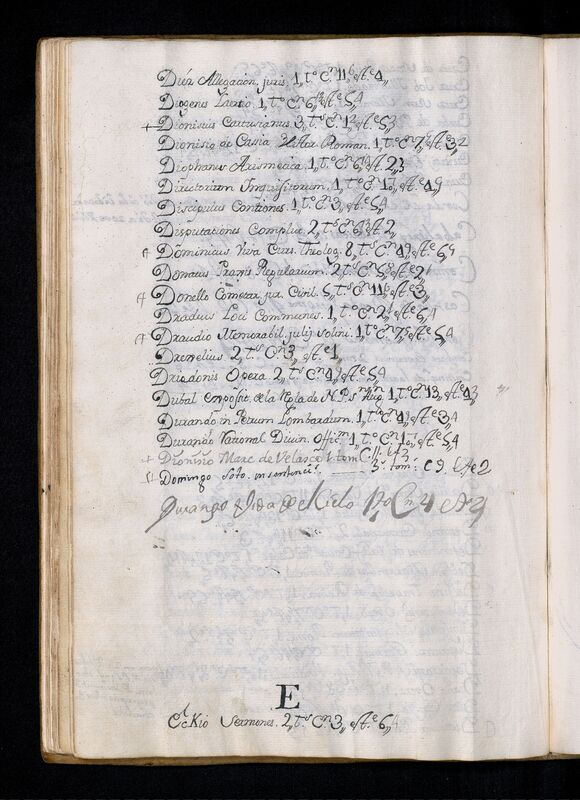 Diez Allegacion. juris. 1,, t.º C.n 11,, est.e 4,,
Diogenes Laercio. 1,, t.º C.n 6,, est.e 5,, 4
+ Dionisius Cartusianus. 3,, t.s C.n 1,, est.e 5,, 3
Dionisio de Casia Histor Roman. 1,, t.º C.n 7,, est.e 3,, 2
Diophantus Arismetica. 1,, t.º C.n 6,, est. 2,, 3
Directorium Inquisitorum. 1,, t.º C.n 1,, est.e 4,,
Discipulus Contiones. 1,, t.º C.n 3,, est.e 5,, 4
Disputationes Complut. 2,, t.s C.n 6,, est. 2,,
Dominicus Viva Curs. Theolog. 8,, t.s C.n 4,, est.e 6,,
Donatus Praxis Regularum. 2,, t.s C.n 5,, est.e 2,,
Donello Cometar. jur. Civil. 5,, t.s C.n 11,, est.e 3,,
Draduis Loci Communes. 1,, t.º C.n 2,, est.e 6,, 4
Draudio Memorabil. julij Solini. 1,, t.º C.n 7,, est.e 5,, 4
Drexelius. 2,, t.s C.n 3,, est.e 1,,
Driedonis Opera. 2,, t.s C.n 4,, est.e 5,, 4
Dubal Exposic. de la Regla de N. P. S. Aug. 1,, t.º C.n 13,, est.e 4,, 3
Durando in Petrum Lombardum. 1,, t.º C.n 4,, est.e 3,, 4
Durando Rational Divin. Offic. 1,, t.º C.n 1,, est.e 5,, 4
+ Dionisio Marc de Velasco 1 tom C. 11. est 3
Domingo Soto. in sentencis. 3.s tom.s C 9. est.e 2
Durango Vida de Kicio 1,, to C.n 4 est 4
E
Eckio Sermones. 2,, t.s C.n 3,, est.e 6,, 4